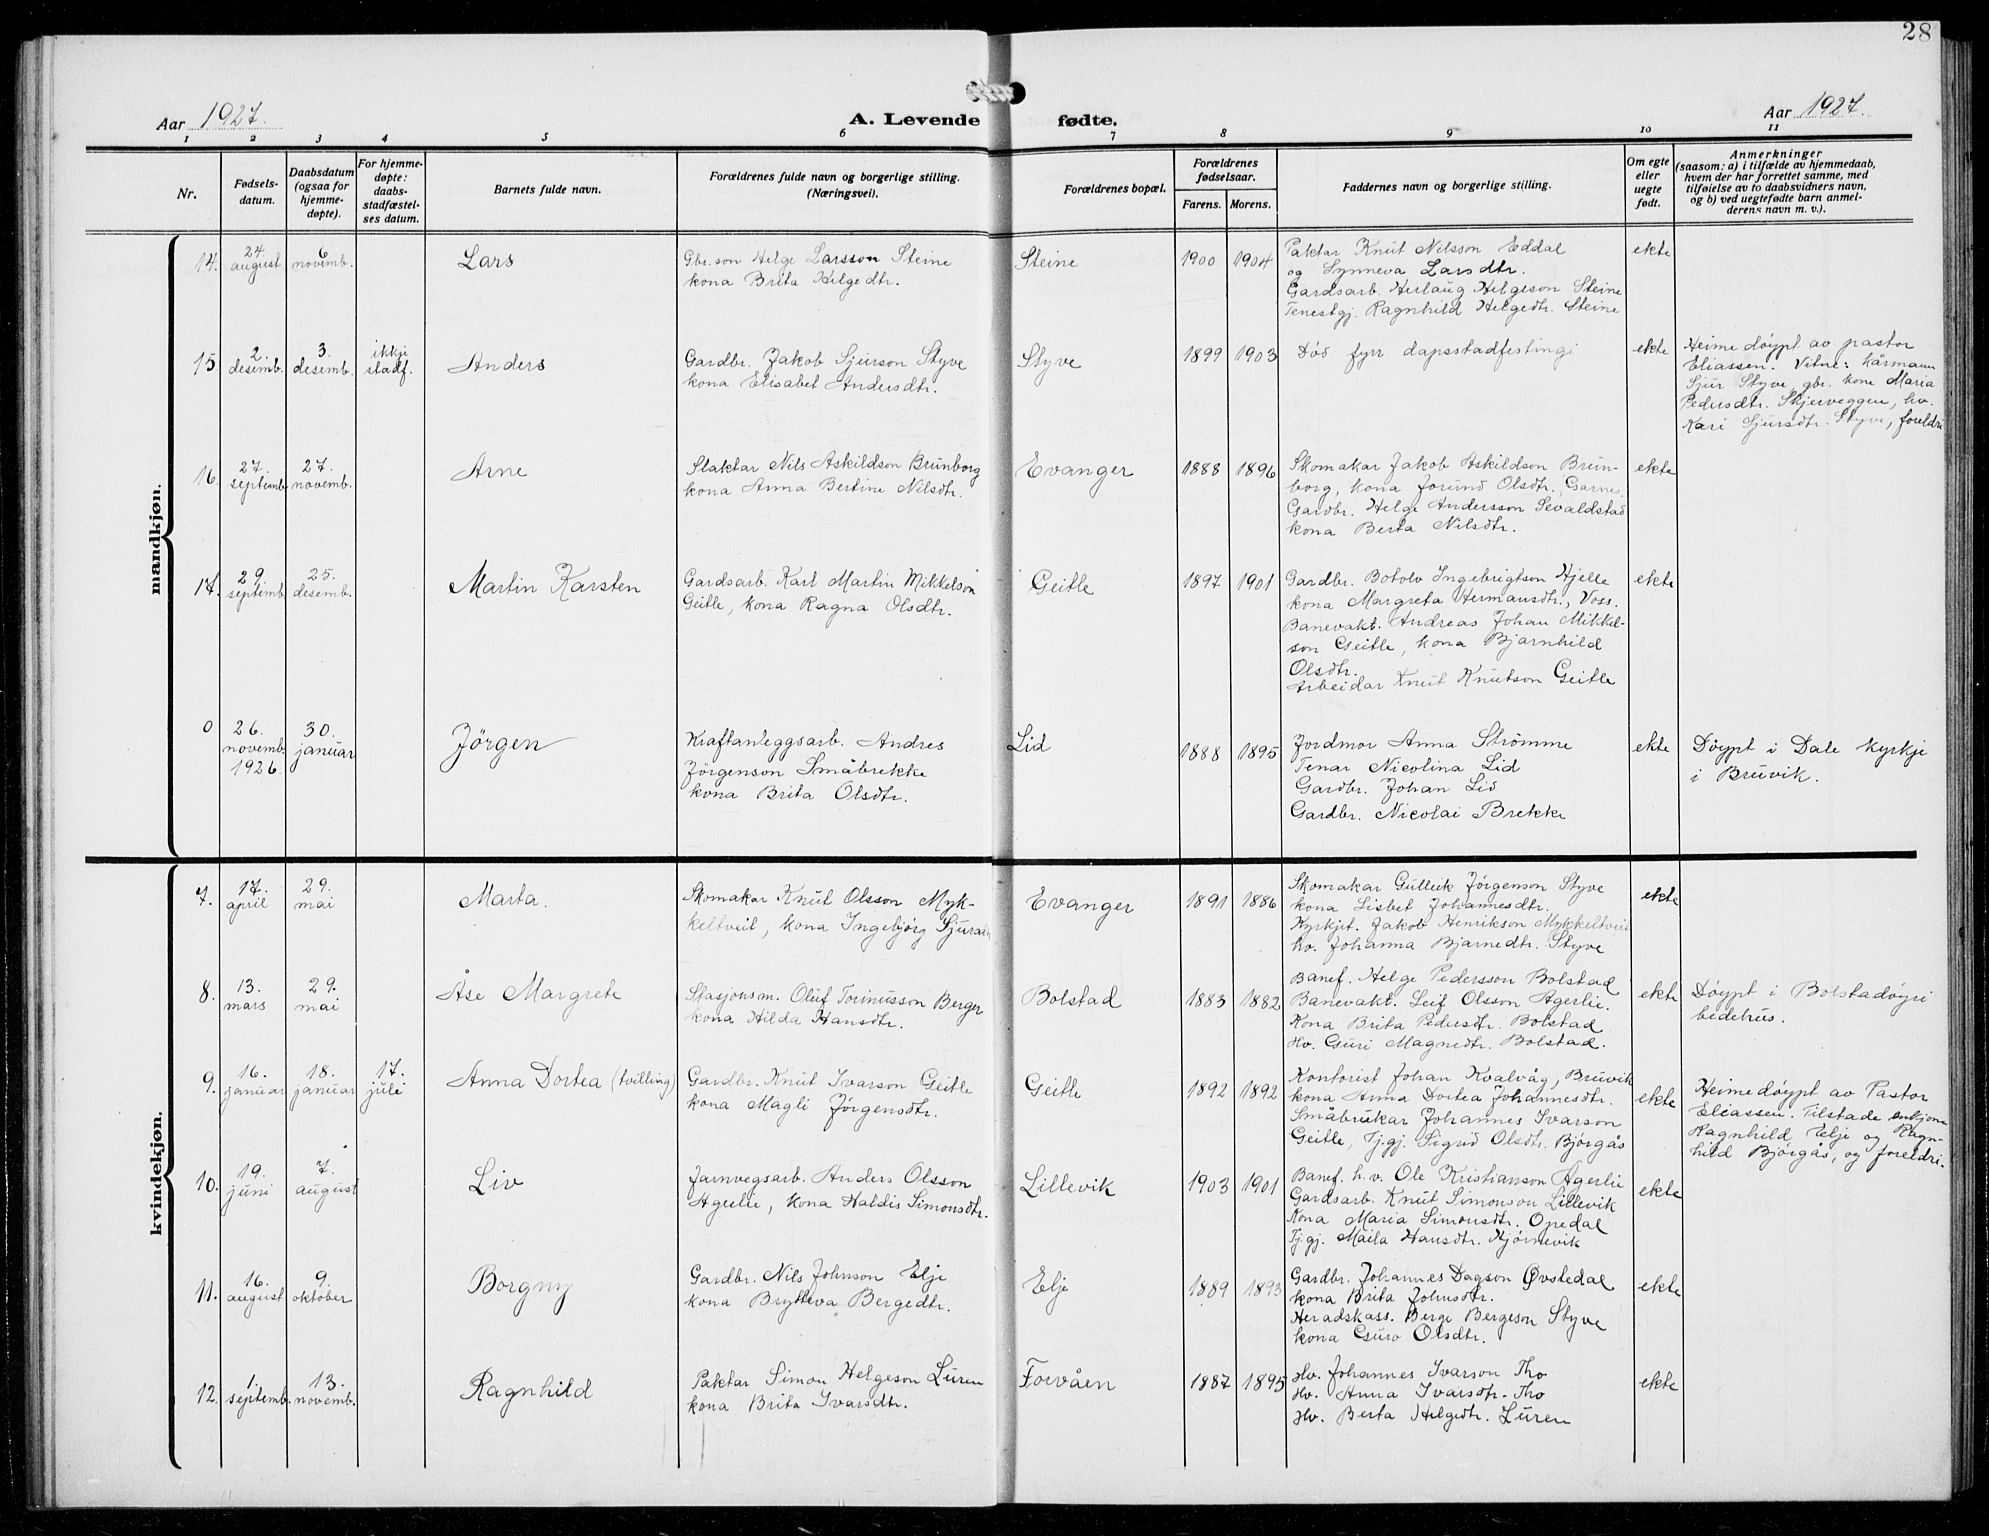 28
Aar 1927. A. Levende fødte. Aar 1927.
1 2 3 4 5 6 7 8 9 10 11
Nr.
Fødsels-
datum.
Daabsdatum
(ogsaa for
hjemme-
døpte).
For hjemme-
døpte:
daabs-
stadfæstel-
ses datum.
Barnets fulde navn.
Forældrenes fulde navn og borgerlige stilling.
(Næringsvei).
Forældrenes bopæl.
Forældrenes
fødselsaar.
Farens. Morens.
Faddernes navn og borgerlige stilling.
Om egte
eller
uegte
født.
Anmerkninger
(saasom: a) i tilfælde av hjemmedaab,
hvem der har forrettet samme, med
tilføielse av to daabsvidners navn,
og b) ved uegtefødte barn anmel-
derens navn m. v.).
mandkjøn.
14.
24.
august
6
novemb.
Lars
Gbr.son Helge Larsson Steine
kona Brita Helgedtr.
Steine
1900 1904
Paktar Knut Nilsson Eddal
og Synneva Larsdtr.
Gardsarb. Herlaug Helgeson Steine
Tenestgj. Ragnhild Helgedtr. Steine
ekte
15
2.
desemb.
3.
desemb.
ikkje
stadf.
Anders
Gardbr. Jakob Sjurson Styve
kona Elisabet Andersdtr.
Styve
1899 1903
Död fyrr dapsstadfestingi
ekte
Heime döypt av pastor
Eliassen. Vitne: kårmann
Sjur Styve, gbr. kone Maria
Pedersdtr. Skjerveggen, hv.
Kari Sjursdtr. Styve, foreldri
16.
27.
septemb.
27.
novemb.
Arne
Slaktar Nils Askildson Brunborg
kona Anna Bertine Nilsdtr.
Evanger
1888 1896
Skomakar Jakob Askildson Brun-
borg, kona Jorund Olsdtr., Garnes.
Gardbr. Helge Andersson Sevaldstad
kona Berta Nilsdtr.
ekte
17.
29.
septemb.
25.
desemb.
Martin Karsten
Gardsarb. Karl Martin Mikkelson
Geitle, kona Ragna Olsdtr.
Geitle
1897 1901
Gardbr. Botolv Ingebrigtson Hjelle
kona Margreta Hermansdtr., Voss.
Banevakt. Andreas Johan Mikkel-
son Geitle, kona Bjarnhild
Olsdtr.
Arbeidar Knut Knutson Geitle
ekte
0
26.
novemb.
1926.
30.
januar
Jörgen
Kraftanleggsarb. Andres
Jörgenson Småbrekke
kona Brita Olsdtr.
Lid
1888 1895
Jordmor Anna Strömme
Tenar Nicolina Lid
Gardbr. Johan Lid
Gardbr. Nicolai Brekke
ekte
Döypt i Dale kyrkje
i Bruvik.
kvindekjøn.
7.
17.
april
29.
mai
Marta.
Skomakar Knut Olsson Myk-
keltveit, kona Ingebjörg
Evanger
1891 1886
Skomakar Gulleik Jörgenson Styve
kona Lisbet Johannesdtr.
Kyrkjet. Jakob Henrikson Mykkeltveit
hv. Johanna Bjarnedtr. Styve
ekte
8.
13.
mars
29.
mai
Åse Margrete
Stasjonsm. Oluf Torinusson Berger
kona Hilda Hansdtr.
Bolstad
1883 1882
Banef. Helge Pedersson Bolstad
Banevakt. Leif Olsson Agerlie.
Kona Brita Pedersdtr. Bolstad
Hv. Guri Magnedtr. Bolstad.
ekte
Döypt i Bolstadöyri
bedehus.
9.
16.
januar
18.
januar
17.
juli
Anna Dortea (tvilling)
Gardbr. Knut Ivarson Geitle
kona Magli Jörgensdtr.
Geitle
1892 1892
Kontorist Johan Kvalvåg, Bruvik
kona Anna Dortea Johannesdtr.
Småbrukar Johannes Ivarson
Geitle, Tj.gj. Sigrid Olsdtr. Björgås
ekte
Heimedöypt av Pastor
Eliassen. Tilstade enkjone
Ragnhild Elje og Ragn-
hild Björgås, og foreldri.
10.
19.
juni
7.
august
Liv
Jarnvegsarb. Anders Olsson
Agerlie, kona Haldis Simonsdtr.
Lillevik
1903 1901
Banef. h.v. Ole Kristianson Agerlie
Gardsarb. Knut Simonson Lillevik
Kona Maria Simonsdtr. Opedal
Tj.gj. Maila Hansdtr. Hjörnevik
ekte
11.
16.
august
9.
oktober
Borgny
Gardbr. Nils Johnson Elje
kona Brytteva Bergedtr.
Elje
1889 1893
Gardbr. Johannes Dagson Øvstedal
kona Brita Johnsdtr.
Heradskass. Berge Bergeson Styve
kona Guro Olsdtr.
ekte
12.
1.
septemb.
13.
novemb.
Ragnhild
Paktar Simon Helgeson Luren
kona Brita Ivarsdtr.
Forvåen
1887 1895
Hv. Johannes Ivarson Tho
Hv. Anna Ivarsdtr. Tho
Hv. Berta Helgedtr. Luren
ekte